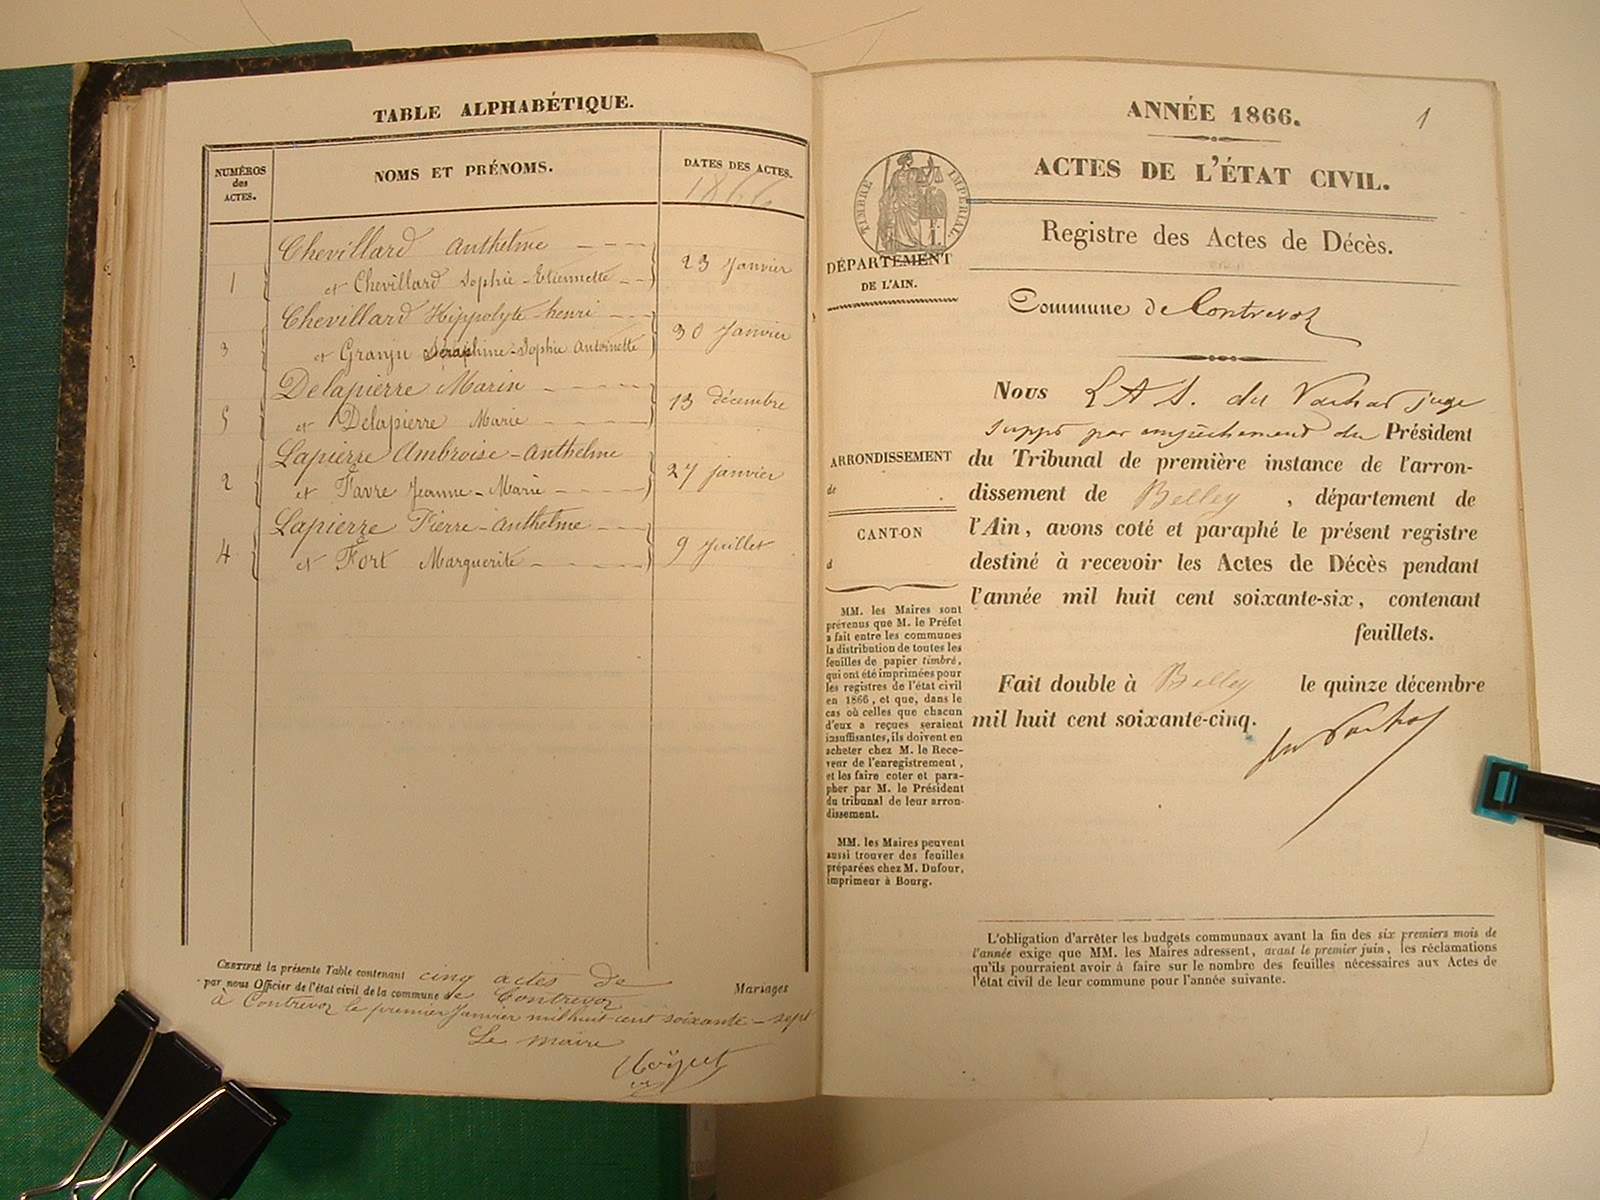 TABLE ALPHABÉTIQUE.
NUMÉROS des ACTES. NOMS ET PRÉNOMS. DATES DES ACTES.
1866
Chevillard Anthelme
1 et Chevillard Sophie-Etiennette 23 Janvier
Chevillard Hippolyte-henri
3 et Granju Séraphine-Sophie Antoinette 30 Janvier
Delapierre Marin
5 et Delapierre Marie 13 décembre
Lapierre Ambroise-Anthelme
2 et Favre Jeanne-Marie 27 janvier
Lapierre Pierre-Anthelme
4 et Fort Marguerite 9 Juillet
CERTIFIÉ la présente Table contenant cinq actes de Mariages
par nous Officier de l'état civil de la commune de Contrevoz
à Contrevoz le premier Janvier mil huit cent soixante-sept
Le maire
ANNÉE 1866.
1
ACTES DE L'ÉTAT CIVIL.
TIMBRE IMPÉRIAL.
Registre des Actes de Décès.
DÉPARTEMENT
DE L'AIN.
Commune de Contrevoz
Nous L A S. du juge
supp par empêchement du Président
du Tribunal de première instance de l'arron-
dissement de Belley, département de
l'Ain, avons coté et paraphé le présent registre
destiné à recevoir les Actes de Décès pendant
l'année mil huit cent soixante-six, contenant
feuillets.
Fait double à Belley le quinze décembre
mil huit cent soixante-cinq.
ARRONDISSEMENT
de
CANTON
d
MM. les Maires sont
prévenus que M. le Préfet
a fait entre les communes
la distribution de toutes les
feuilles de papier timbré,
qui ont été imprimées pour
les registres de l'état civil
en 1866, et que, dans le
cas où celles que chacun
d'eux a reçues seraient
insuffisantes, ils doivent en
acheter chez M. le Rece-
veur de l'enregistrement,
et les faire coter et para-
pher par M. le Président
du tribunal de leur arron-
dissement.
MM. les Maires peuvent
aussi trouver des feuilles
préparées chez M. Dufour,
imprimeur à Bourg.
L'obligation d'arrêter les budgets communaux avant la fin des six premiers mois de
l'année exige que MM. les Maires adressent, avant le premier juin, les réclamations
qu'ils pourraient avoir à faire sur le nombre des feuilles nécessaires aux Actes de
l'état civil de leur commune pour l'année suivante.